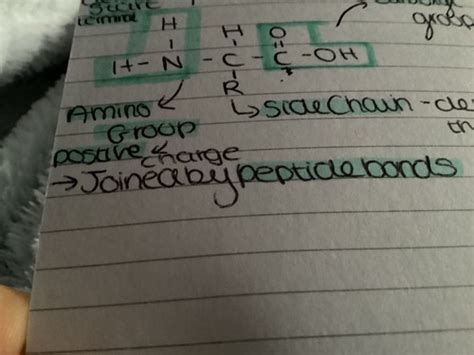 terminal
group
H
H O
H - N - C - C - OH
R
Amino
Group
side chain - de
th
positive charge
→ Joined by peptide bonds